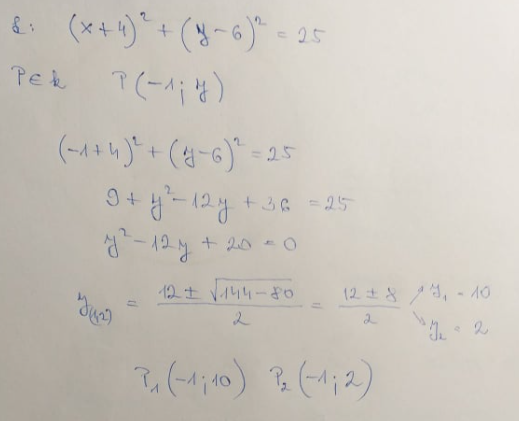 k: (x+4)² + (y-6)² = 25
P∈k P(-1; y)
(-1+4)² + (y-6)² = 25
9 + y² - 12y + 36 = 25
y² - 12y + 20 = 0
y(1,2) = (12 ± √(144-80))/2 = (12 ± 8)/2 ↗ y₁ = 10
↘ y₂ = 2
P₁(-1; 10) P₂(-1; 2)